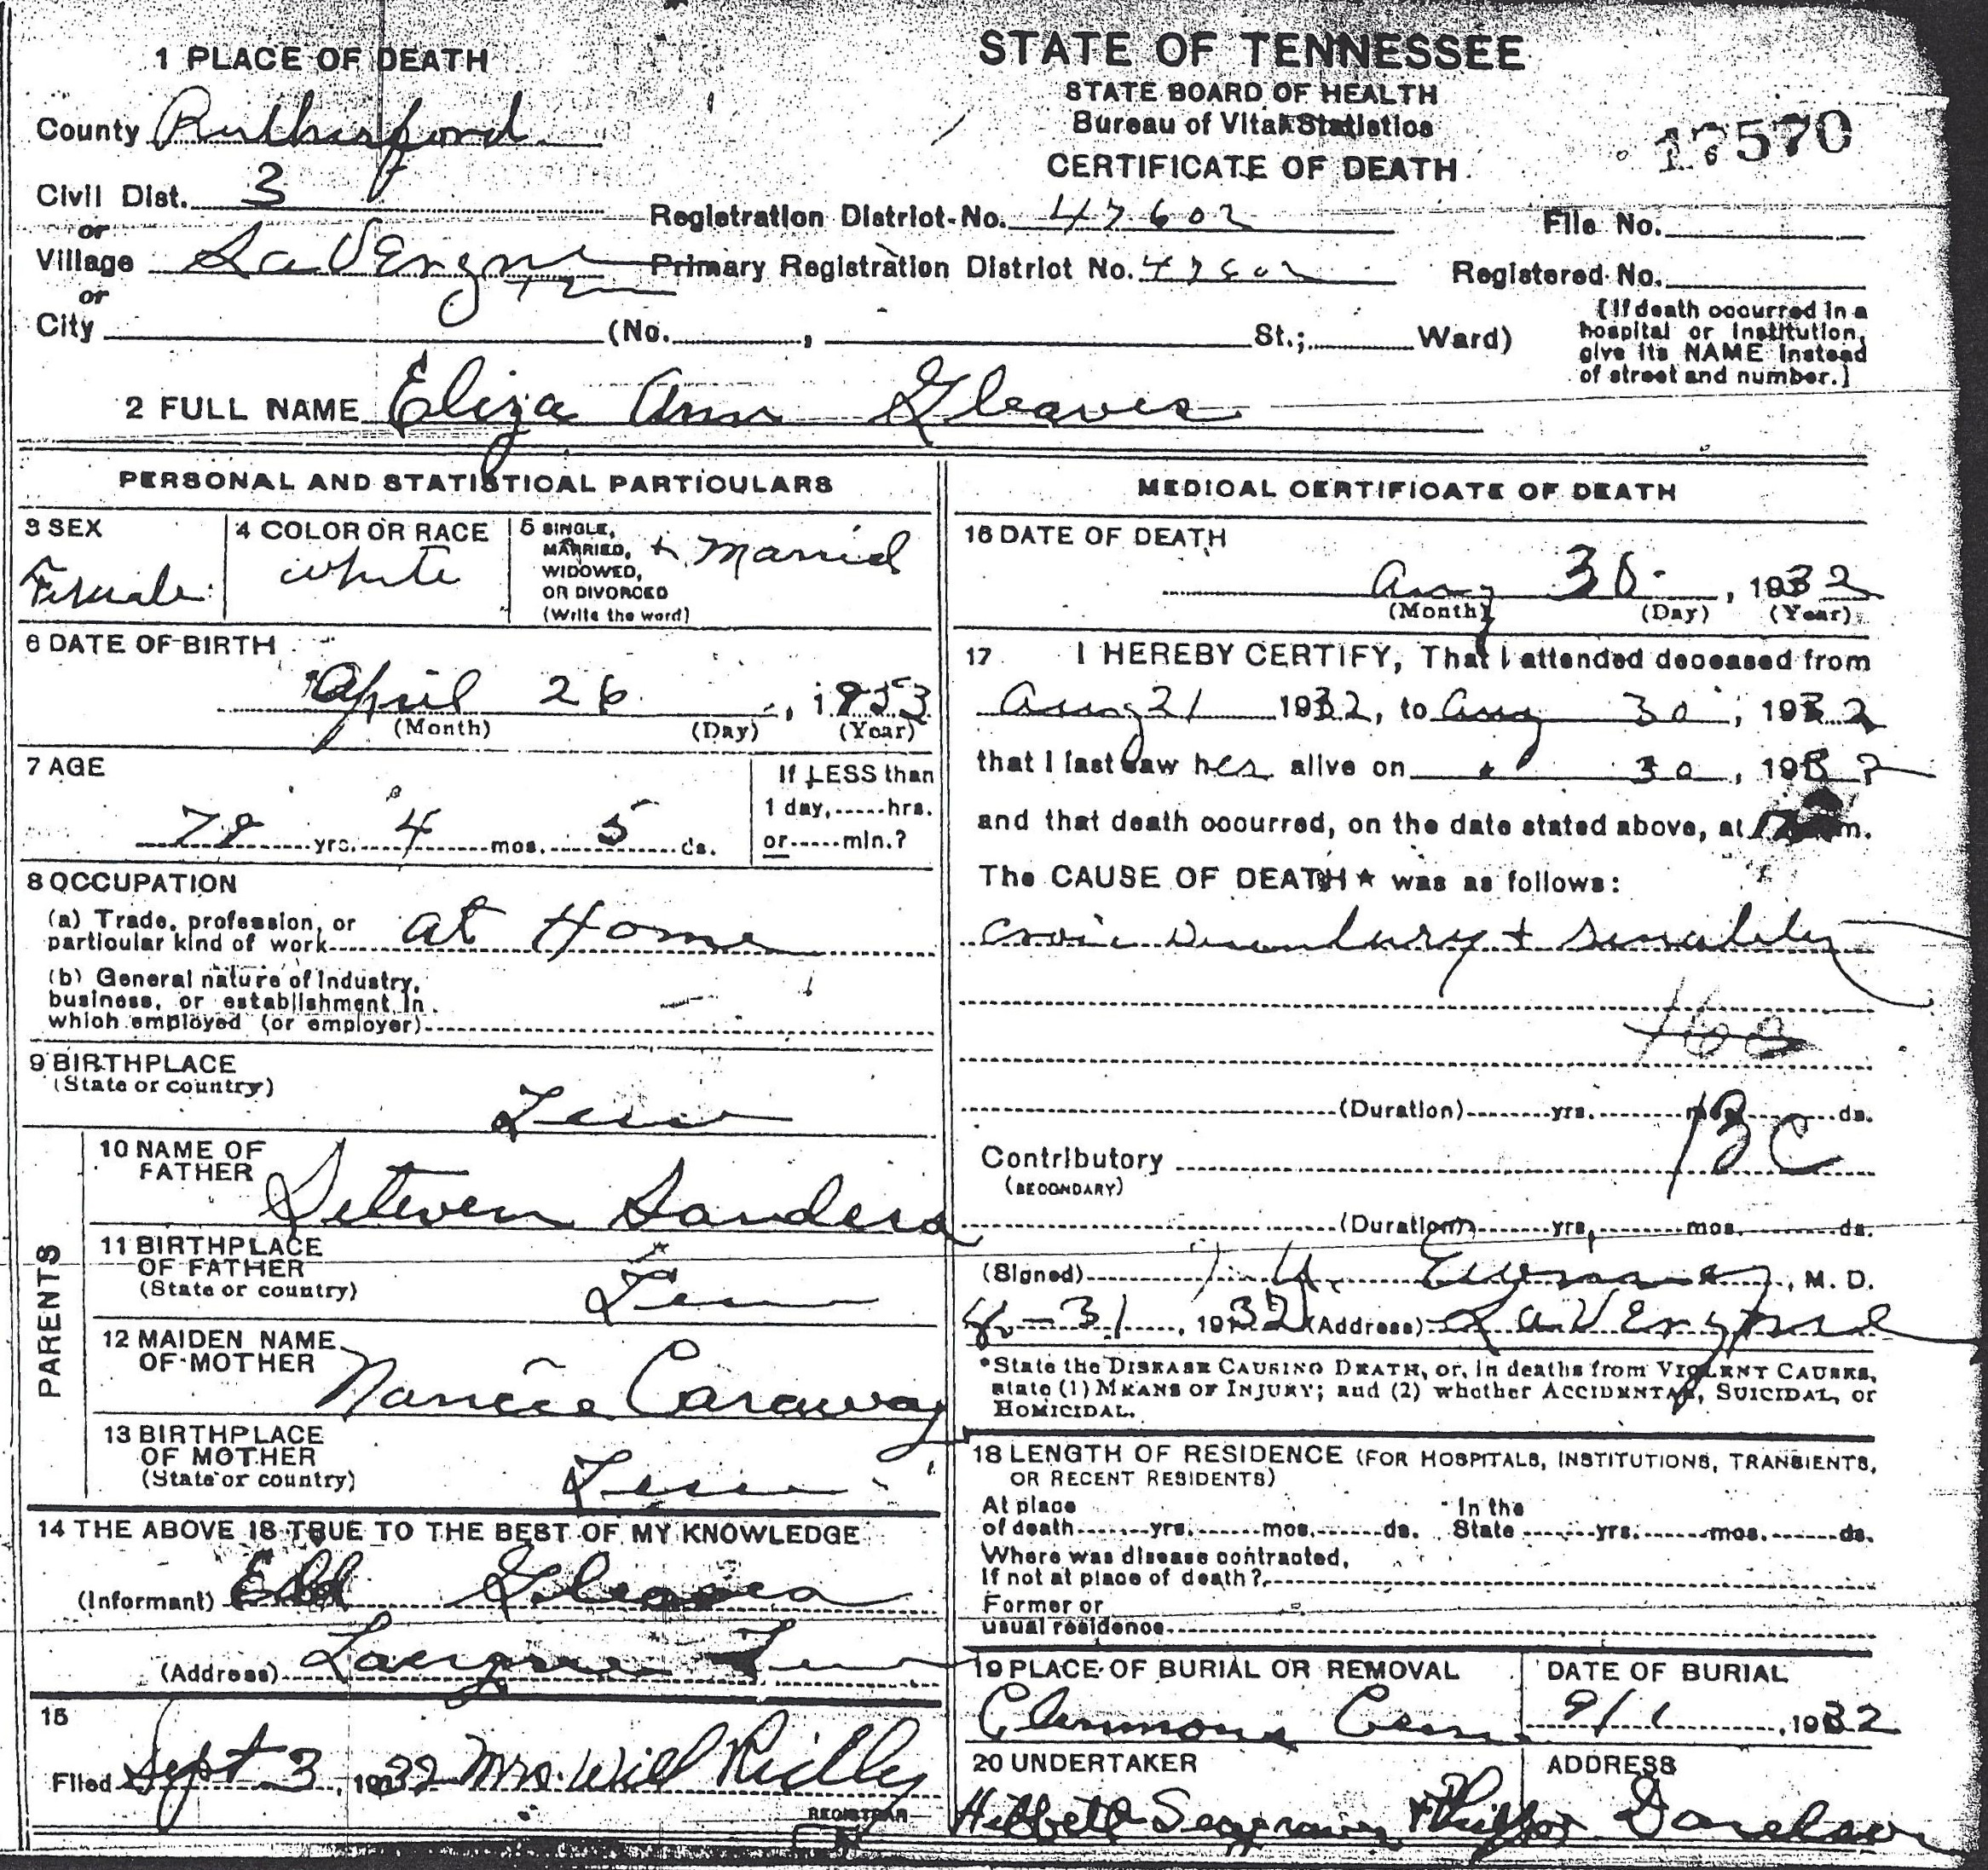 1 PLACE OF DEATH
County Rutherford
Civil Dist. 3
or
Village LaVergne
or
City (No. , St.; Ward)
STATE OF TENNESSEE
STATE BOARD OF HEALTH
Bureau of Vital Statistics
CERTIFICATE OF DEATH
17570
Registration District No. 47602 File No.
Primary Registration District No. 47602 Registered No.
(If death occurred in a
hospital or institution,
give its NAME instead
of street and number.)
2 FULL NAME Eliza Ann Gleaves
PERSONAL AND STATISTICAL PARTICULARS
3 SEX
Female
4 COLOR OR RACE
white
5 SINGLE,
MARRIED,
WIDOWED,
OR DIVORCED
(Write the word)
Married
6 DATE OF BIRTH
April 26, 1853
(Month) (Day) (Year)
7 AGE
79 yrs. 4 mos. 5 ds.
If LESS than
1 day, hrs.
or min.?
8 OCCUPATION
(a) Trade, profession, or
particular kind of work at Home
(b) General nature of industry,
business, or establishment in
which employed (or employer)
9 BIRTHPLACE
(State or country)
Tenn
PARENTS
10 NAME OF
FATHER
Seteven Sanders
11 BIRTHPLACE
OF FATHER
(State or country)
Tenn
12 MAIDEN NAME
OF MOTHER
Nancie Caraway
13 BIRTHPLACE
OF MOTHER
(State or country)
Tenn
14 THE ABOVE IS TRUE TO THE BEST OF MY KNOWLEDGE
(Informant) Gleaves
(Address) Lavergne Tenn
15
Filed Sept 3, 1932 Mrs. Will Ridley
REGISTRAR
MEDICAL CERTIFICATE OF DEATH
16 DATE OF DEATH
Aug 30, 1932
(Month) (Day) (Year)
17 I HEREBY CERTIFY, That I attended deceased from
Aug 21 1932, to Aug 30, 1932
that I last saw her alive on 30, 193?
and that death occurred, on the date stated above, at m.
The CAUSE OF DEATH * was as follows:
+ senility
(Duration) yrs. mos. ds.
13C
Contributory
(SECONDARY)
(Duration) yrs. mos. ds.
(Signed) M. D.
31, 1932 (Address) LaVergne
*State the DISEASE CAUSING DEATH, or, in deaths from VIOLENT CAUSES,
state (1) MEANS OF INJURY; and (2) whether ACCIDENTAL, SUICIDAL, or
HOMICIDAL.
18 LENGTH OF RESIDENCE (FOR HOSPITALS, INSTITUTIONS, TRANSIENTS,
OR RECENT RESIDENTS)
At place In the
of death yrs. mos. ds. State yrs. mos. ds.
Where was disease contracted,
If not at place of death?
Former or
usual residence
19 PLACE OF BURIAL OR REMOVAL
Clemmons Cem.
DATE OF BURIAL
9/1, 1932
20 UNDERTAKER
Hibbett
ADDRESS
Donelson